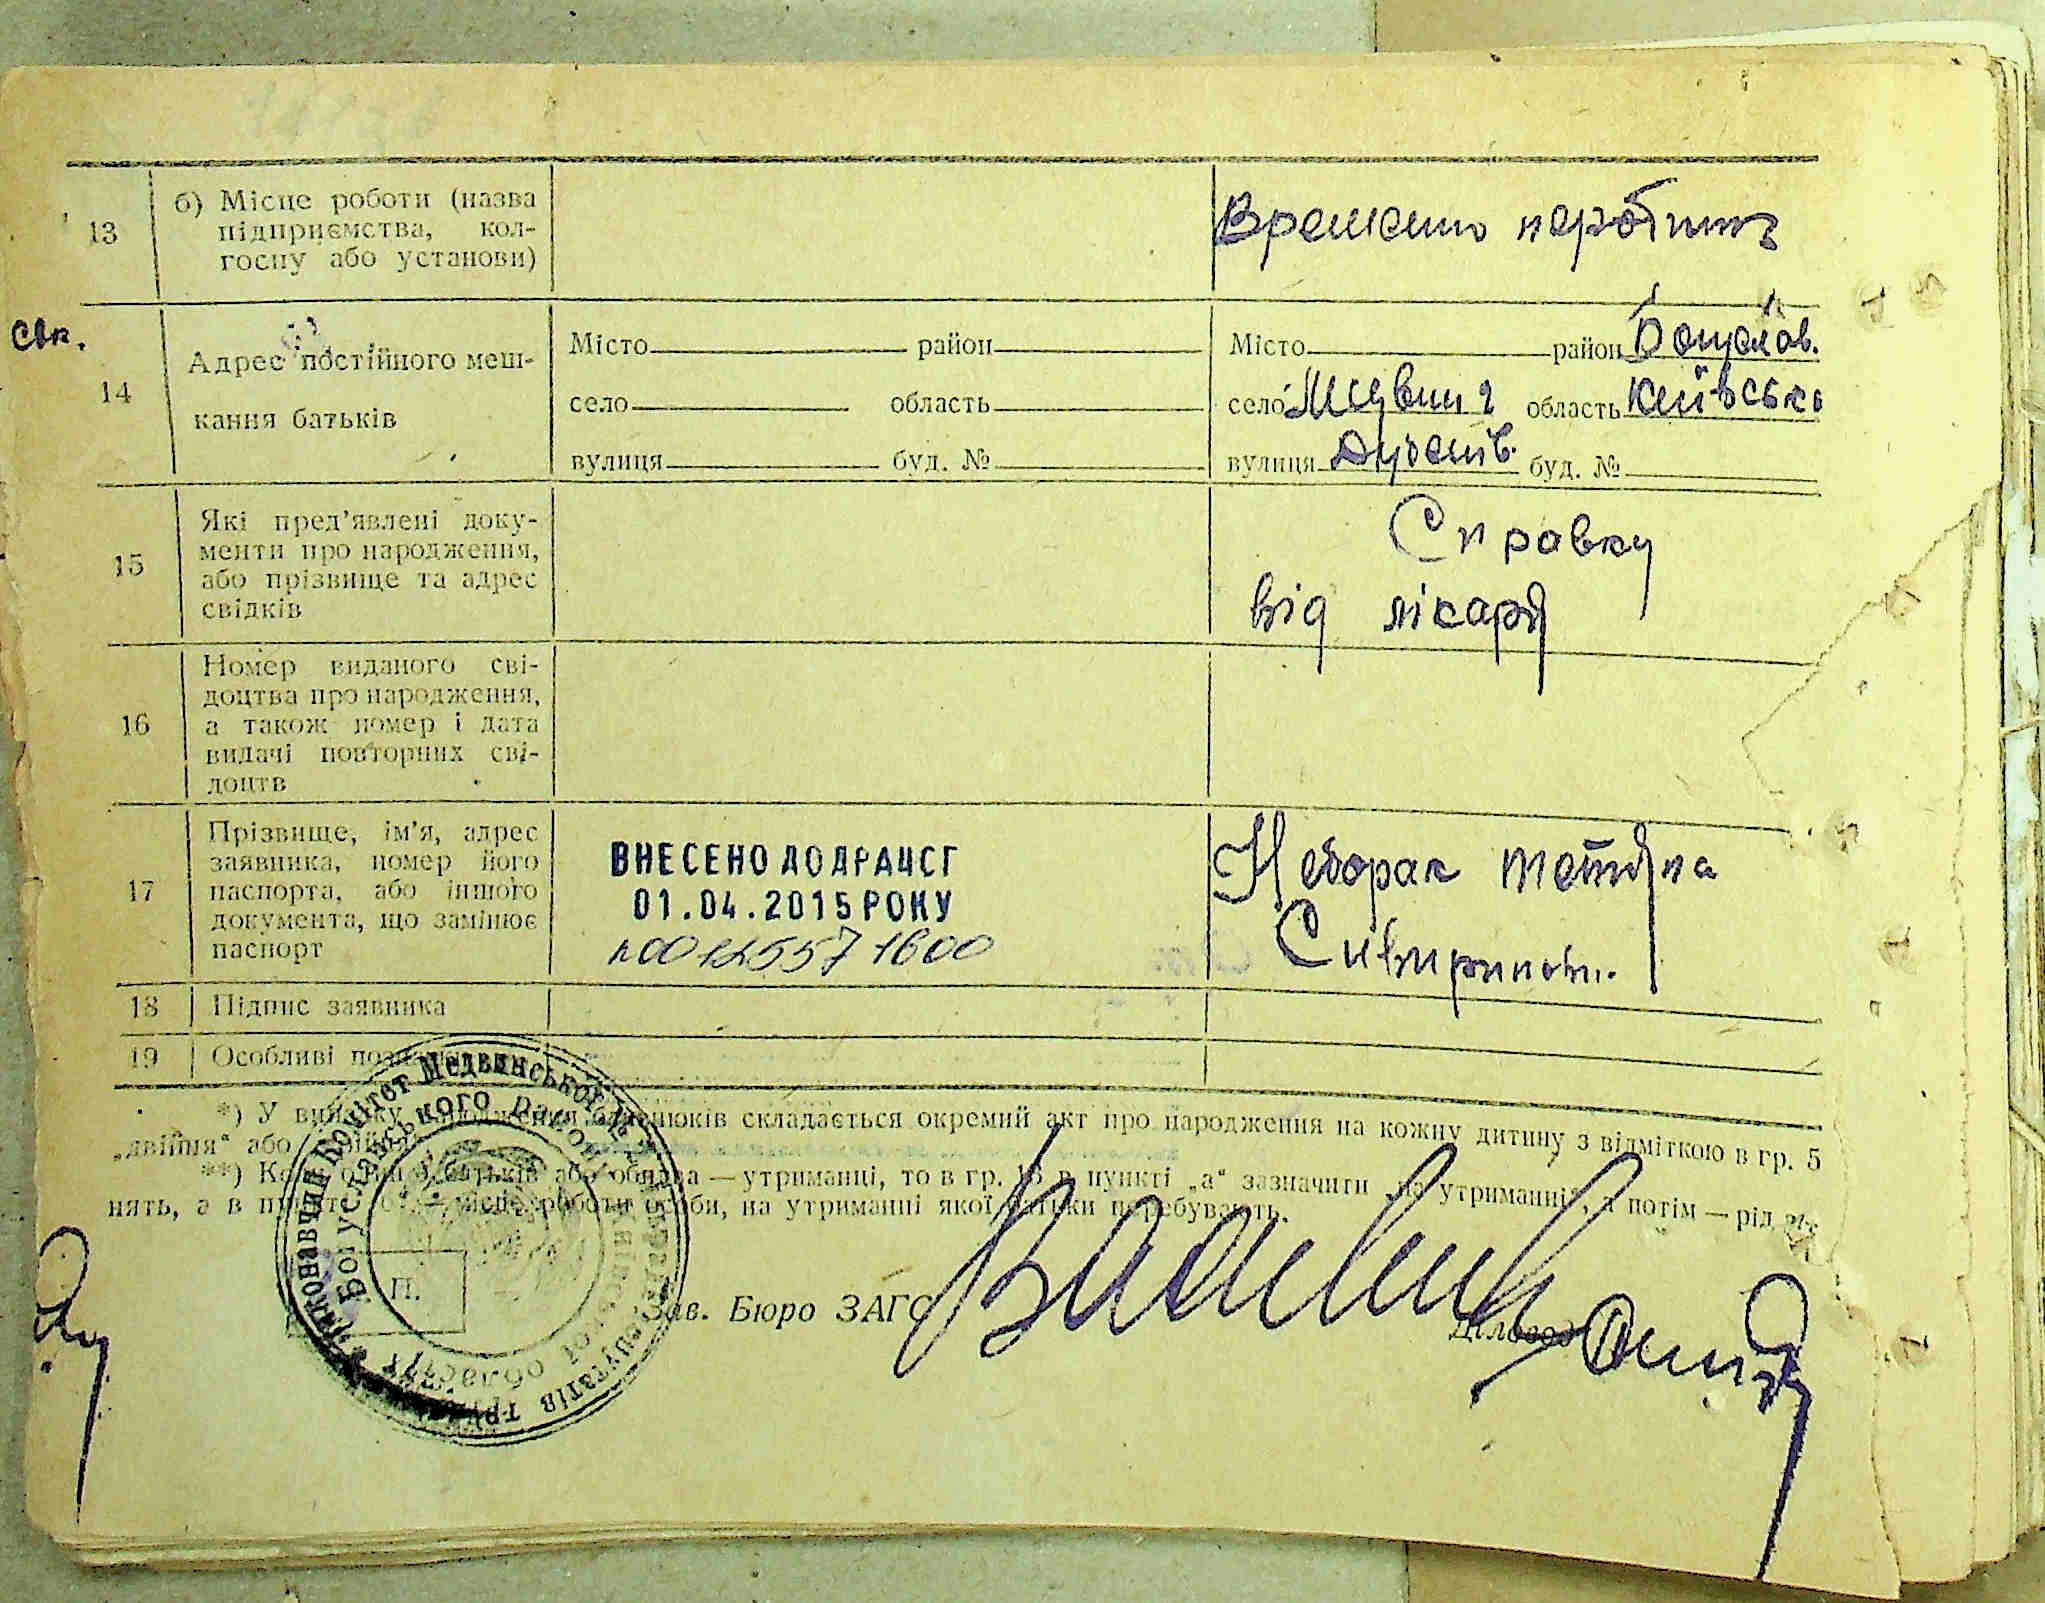 13
б) Місце роботи (назва
підприємства, кол-
госпу або установи)
Временно
14
Адрес постійного меш-
кання батьків
Місто район
село область
вулиця буд. №
Місто район Богуслав.
село область Київсько
вулиця буд. №
15
Які пред'явлені доку-
менти про народження,
або прізвище та адрес
свідків
Справку
від лікаря
16
Номер виданого сві-
доцтва про народження,
а також номер і дата
видачі повторних сві-
доцтв
17
Прізвище, ім'я, адрес
заявника, номер його
паспорта, або іншого
документа, що замінює
паспорт
ВНЕСЕНО ДО ДРАЦСГ
01.04.2015 РОКУ
Неборак Тетяна
18
Підпис заявника
19
Особливі
*) У випадку народження близнюків складається окремий акт про народження на кожну дитину з відміткою в гр. 5
„двійня“ або
**) Коли батьків або обидва — утриманці, то в гр. 13 в пункті „а“ зазначити „на утриманні“, а потім — рід
нять, а в пункті місце роботи особи, на утриманні якої батьки перебувають.
Виконавчий Комітет Медвинської
Богуславського району Київської області
депутатів трудящих
П.
Зав. Бюро ЗАГС
Діловод